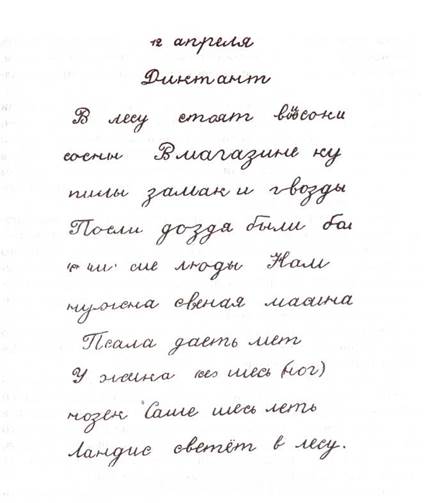 12 апреля
Диктант
В лесу стоят высоки
сосны В магазине ку
пилы замак и гвозды
Посли доздя были бол
сие люды Нам
нужена свеная масина
Псала даеть мет
У жика без шесь (ног)
ножек Саше шесь леть
Ландис светёт в лесу.